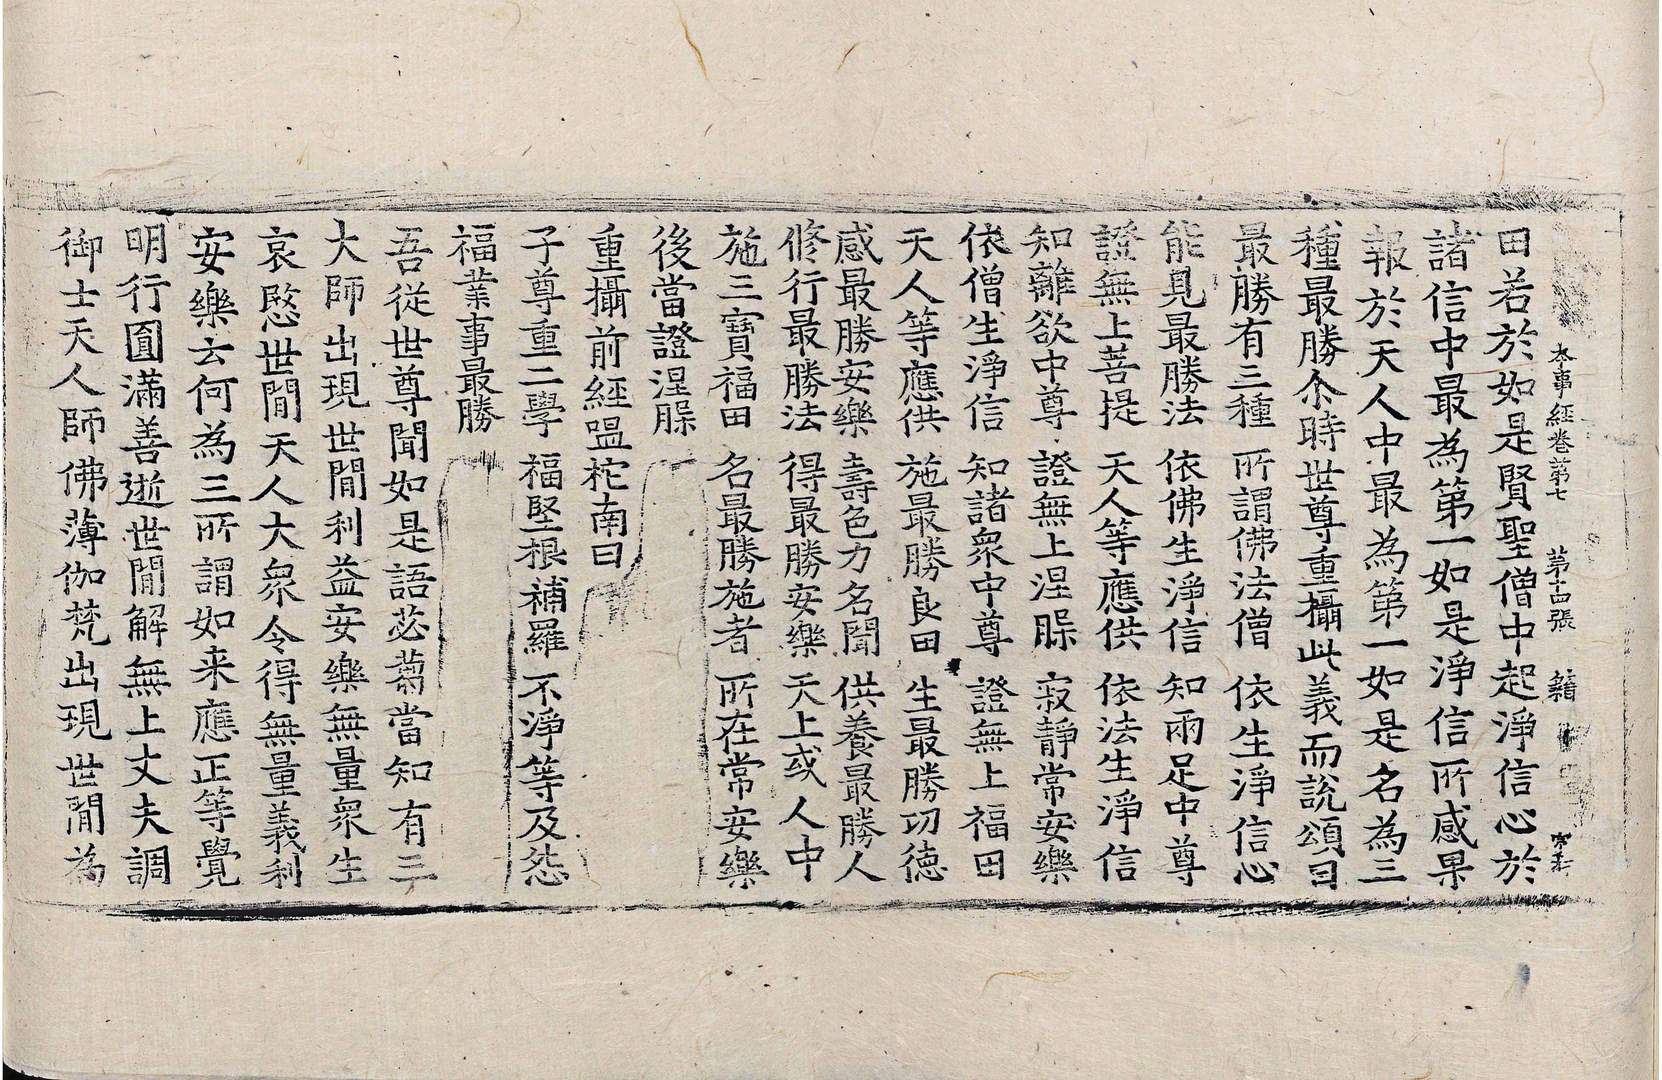 本事經卷第七 第十四張 籍
田若於如是賢聖僧中起淨信心於
諸信中最為第一如是淨信所感果
報於天人中最為第一如是名為三
種最勝尒時世尊重攝此義而說頌曰
最勝有三種 所謂佛法僧 依生淨信心
能見最勝法 依佛生淨信 知兩足中尊
證無上菩提 天人等應供 依法生淨信
知離欲中尊 證無上涅脲 寂靜常安樂
依僧生淨信 知諸衆中尊 證無上福田
天人等應供 施最勝良田 生最勝功德
感最勝安樂 壽色力名聞 供養最勝人
修行最勝法 得最勝安樂 天上或人中
施三寶福田 名最勝施者 所在常安樂
後當證涅脲
重攝前經嗢柁南曰
子尊重二學 福堅根補羅 不淨等及怨
福業事最勝
吾從世尊聞如是語苾蒭當知有三
大師出現世間利益安樂無量衆生
哀愍世間天人大衆令得無量義利
安樂云何為三所謂如来應正等覺
明行圓滿善逝世間解無上丈夫調
御士天人師佛薄伽梵出現世間為